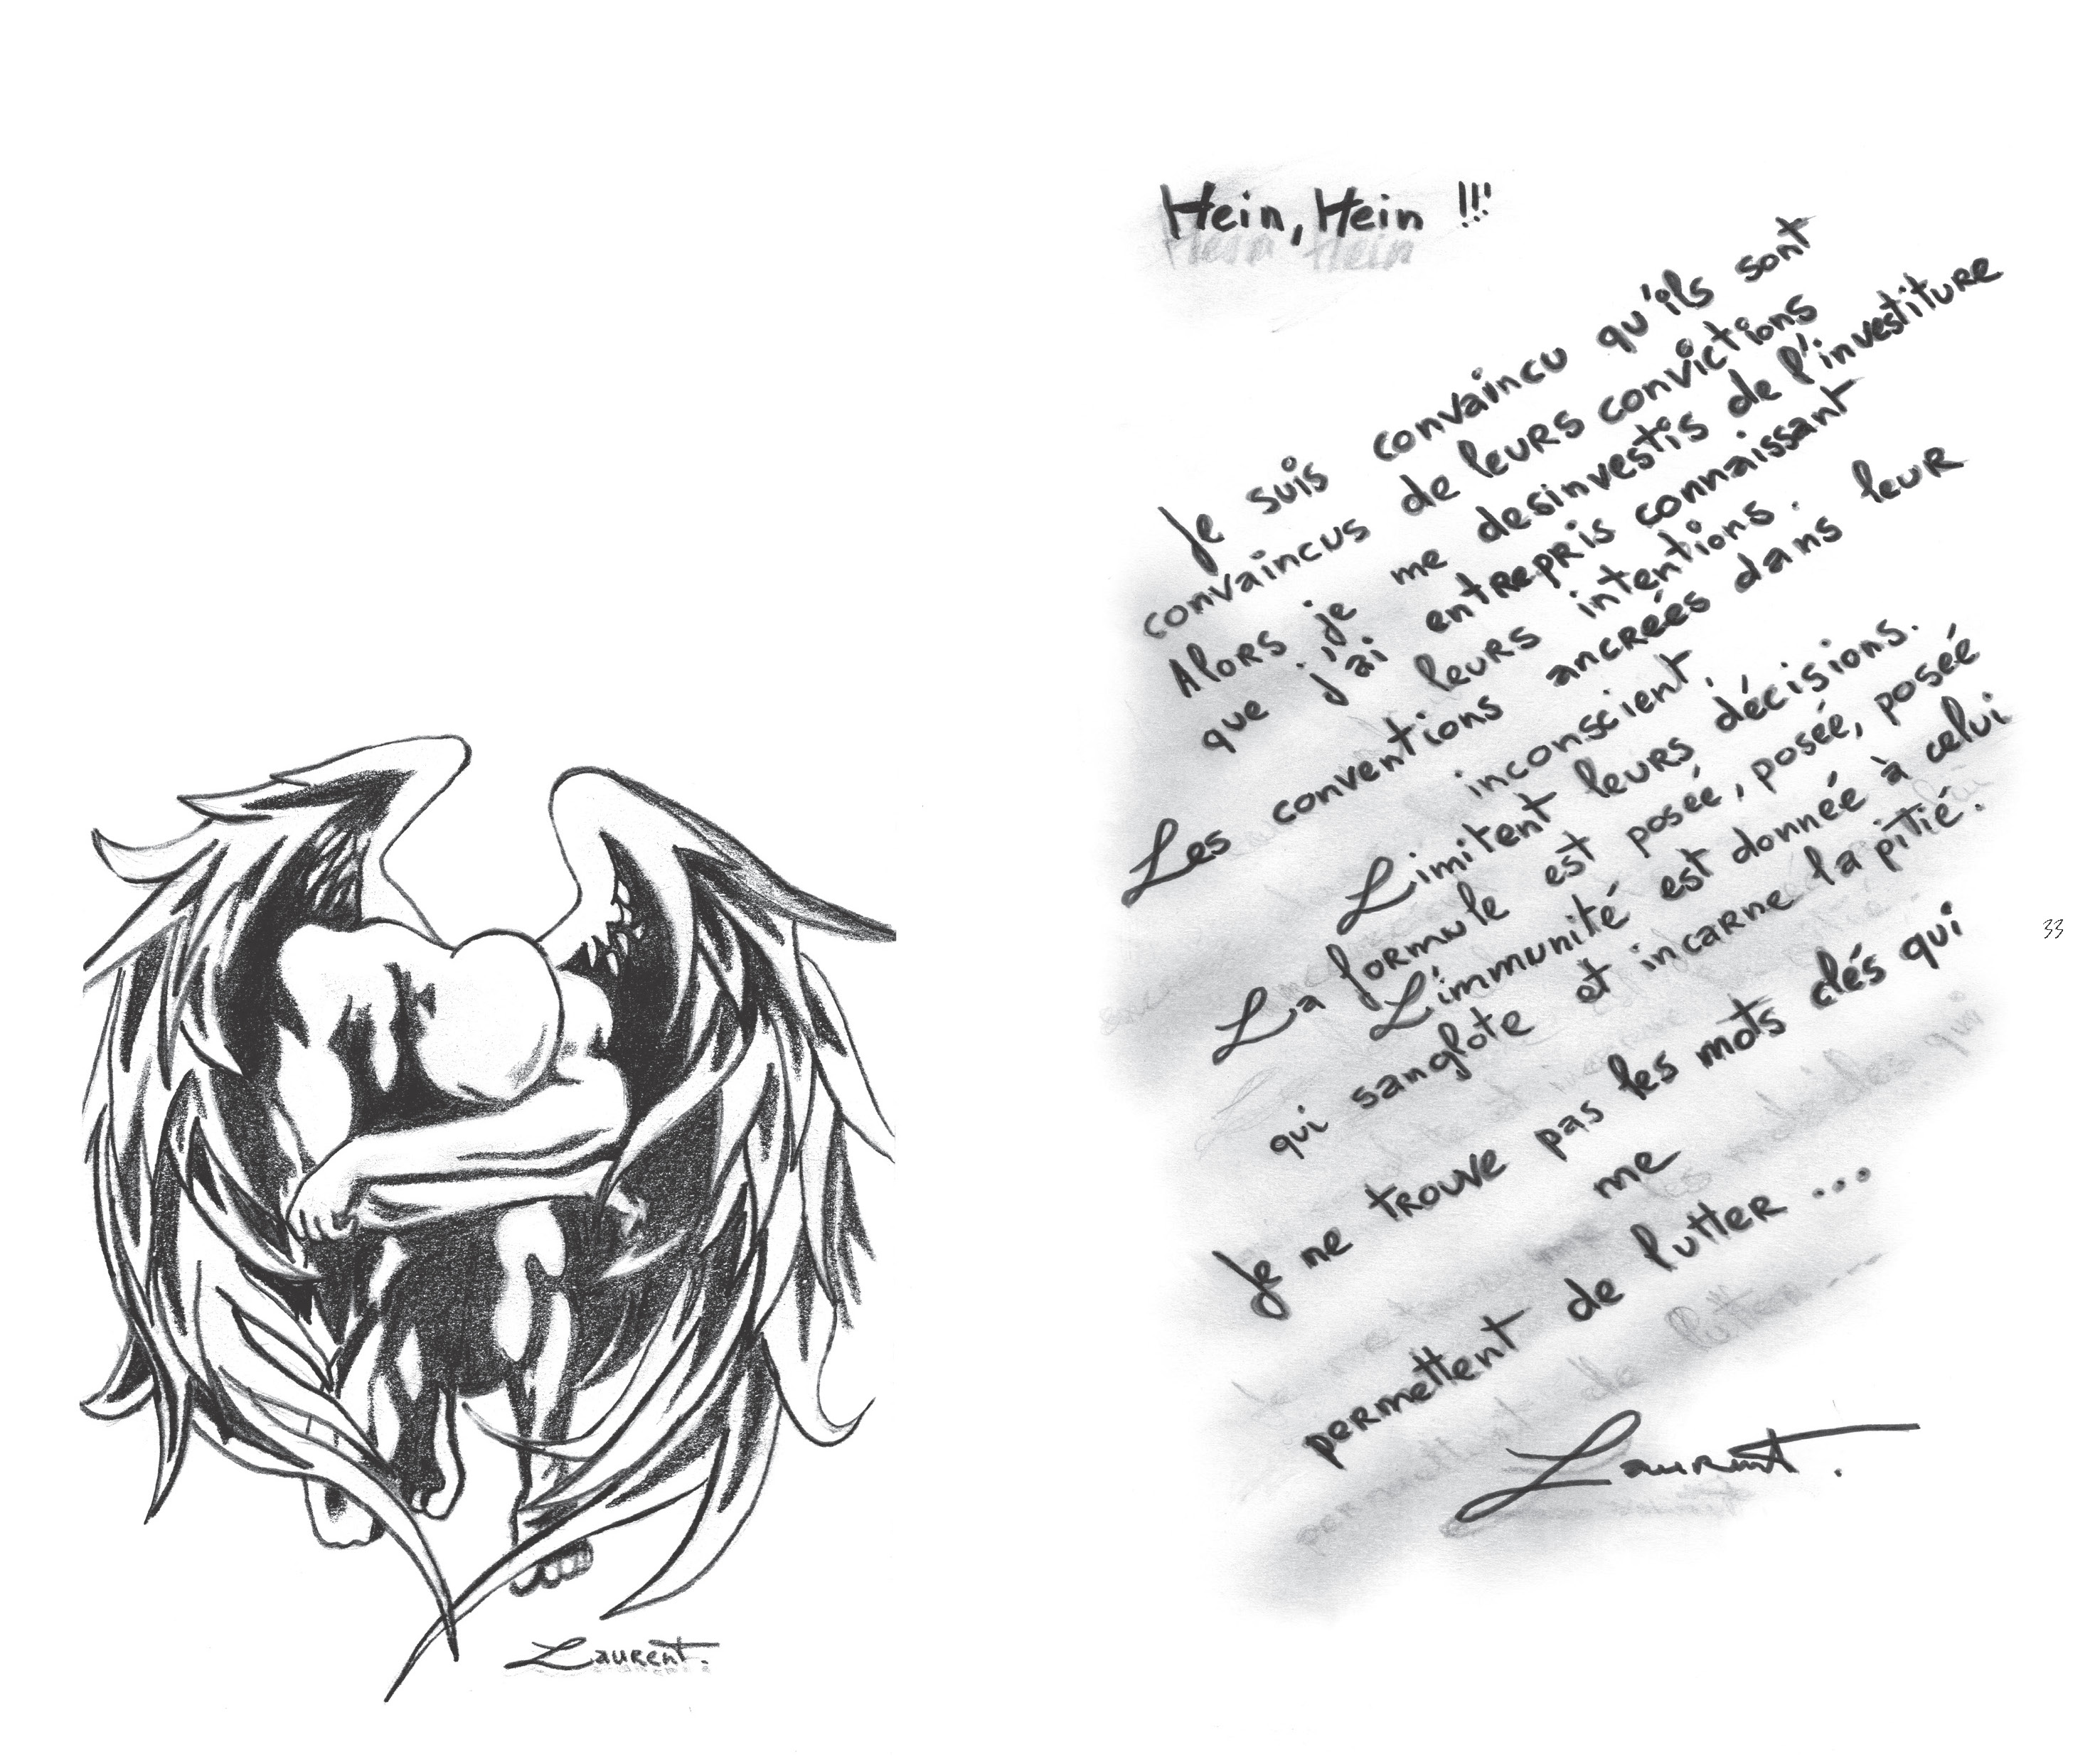 Hein, Hein !!!
Je suis convaincu qu'ils sont
convaincus de leurs convictions
Alors je me desinvestis de l'investiture
que j'ai entrepris connaissant
leurs intentions.
Les conventions ancrées dans leur
inconscient,
Limitent leurs décisions.
La formule est posée, posée, posée
L'immunité est donnée à celui
qui sanglote et incarne la pitié.
Je ne trouve pas les mots clés qui
me
permettent de lutter ...
Laurent.
Laurent.
33